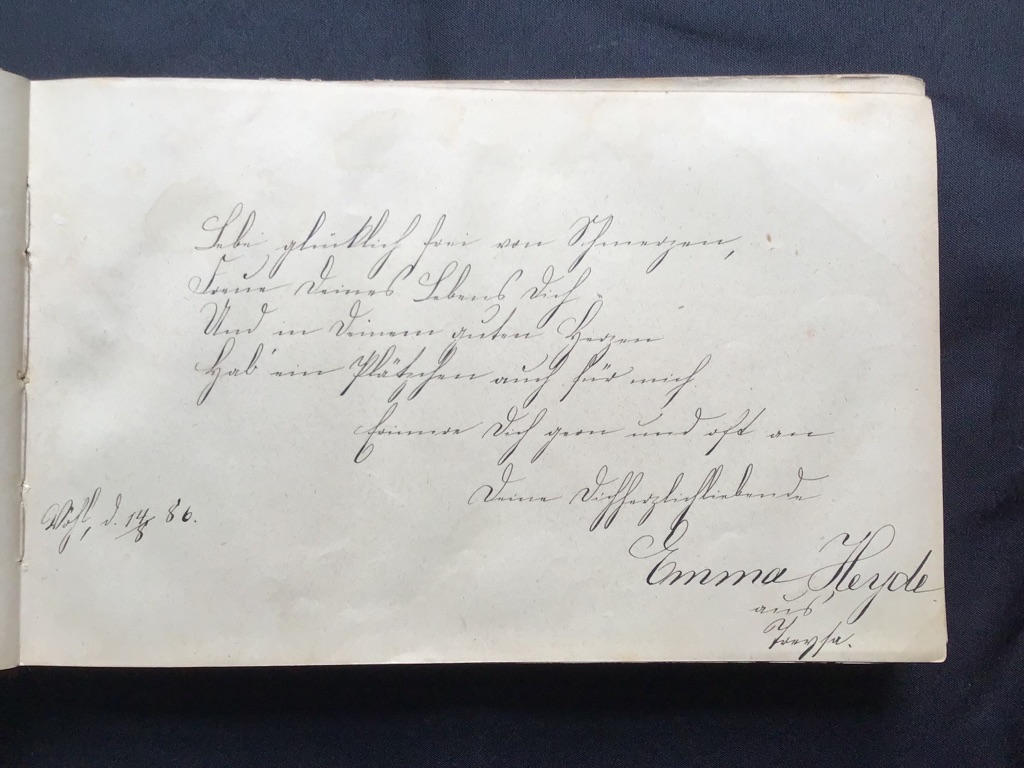 Lebe glücklich frei von Schmerzen,
Freue Deines Lebens Dich
Und in Deinem guten Herzen
Hab' ein Plätzchen auch für mich
Erinnre Dich gern und oft an
Deine Dichherzlichliebende
Vöhl, d. 14/8 86.
Emma Heyde
aus
Treysa.